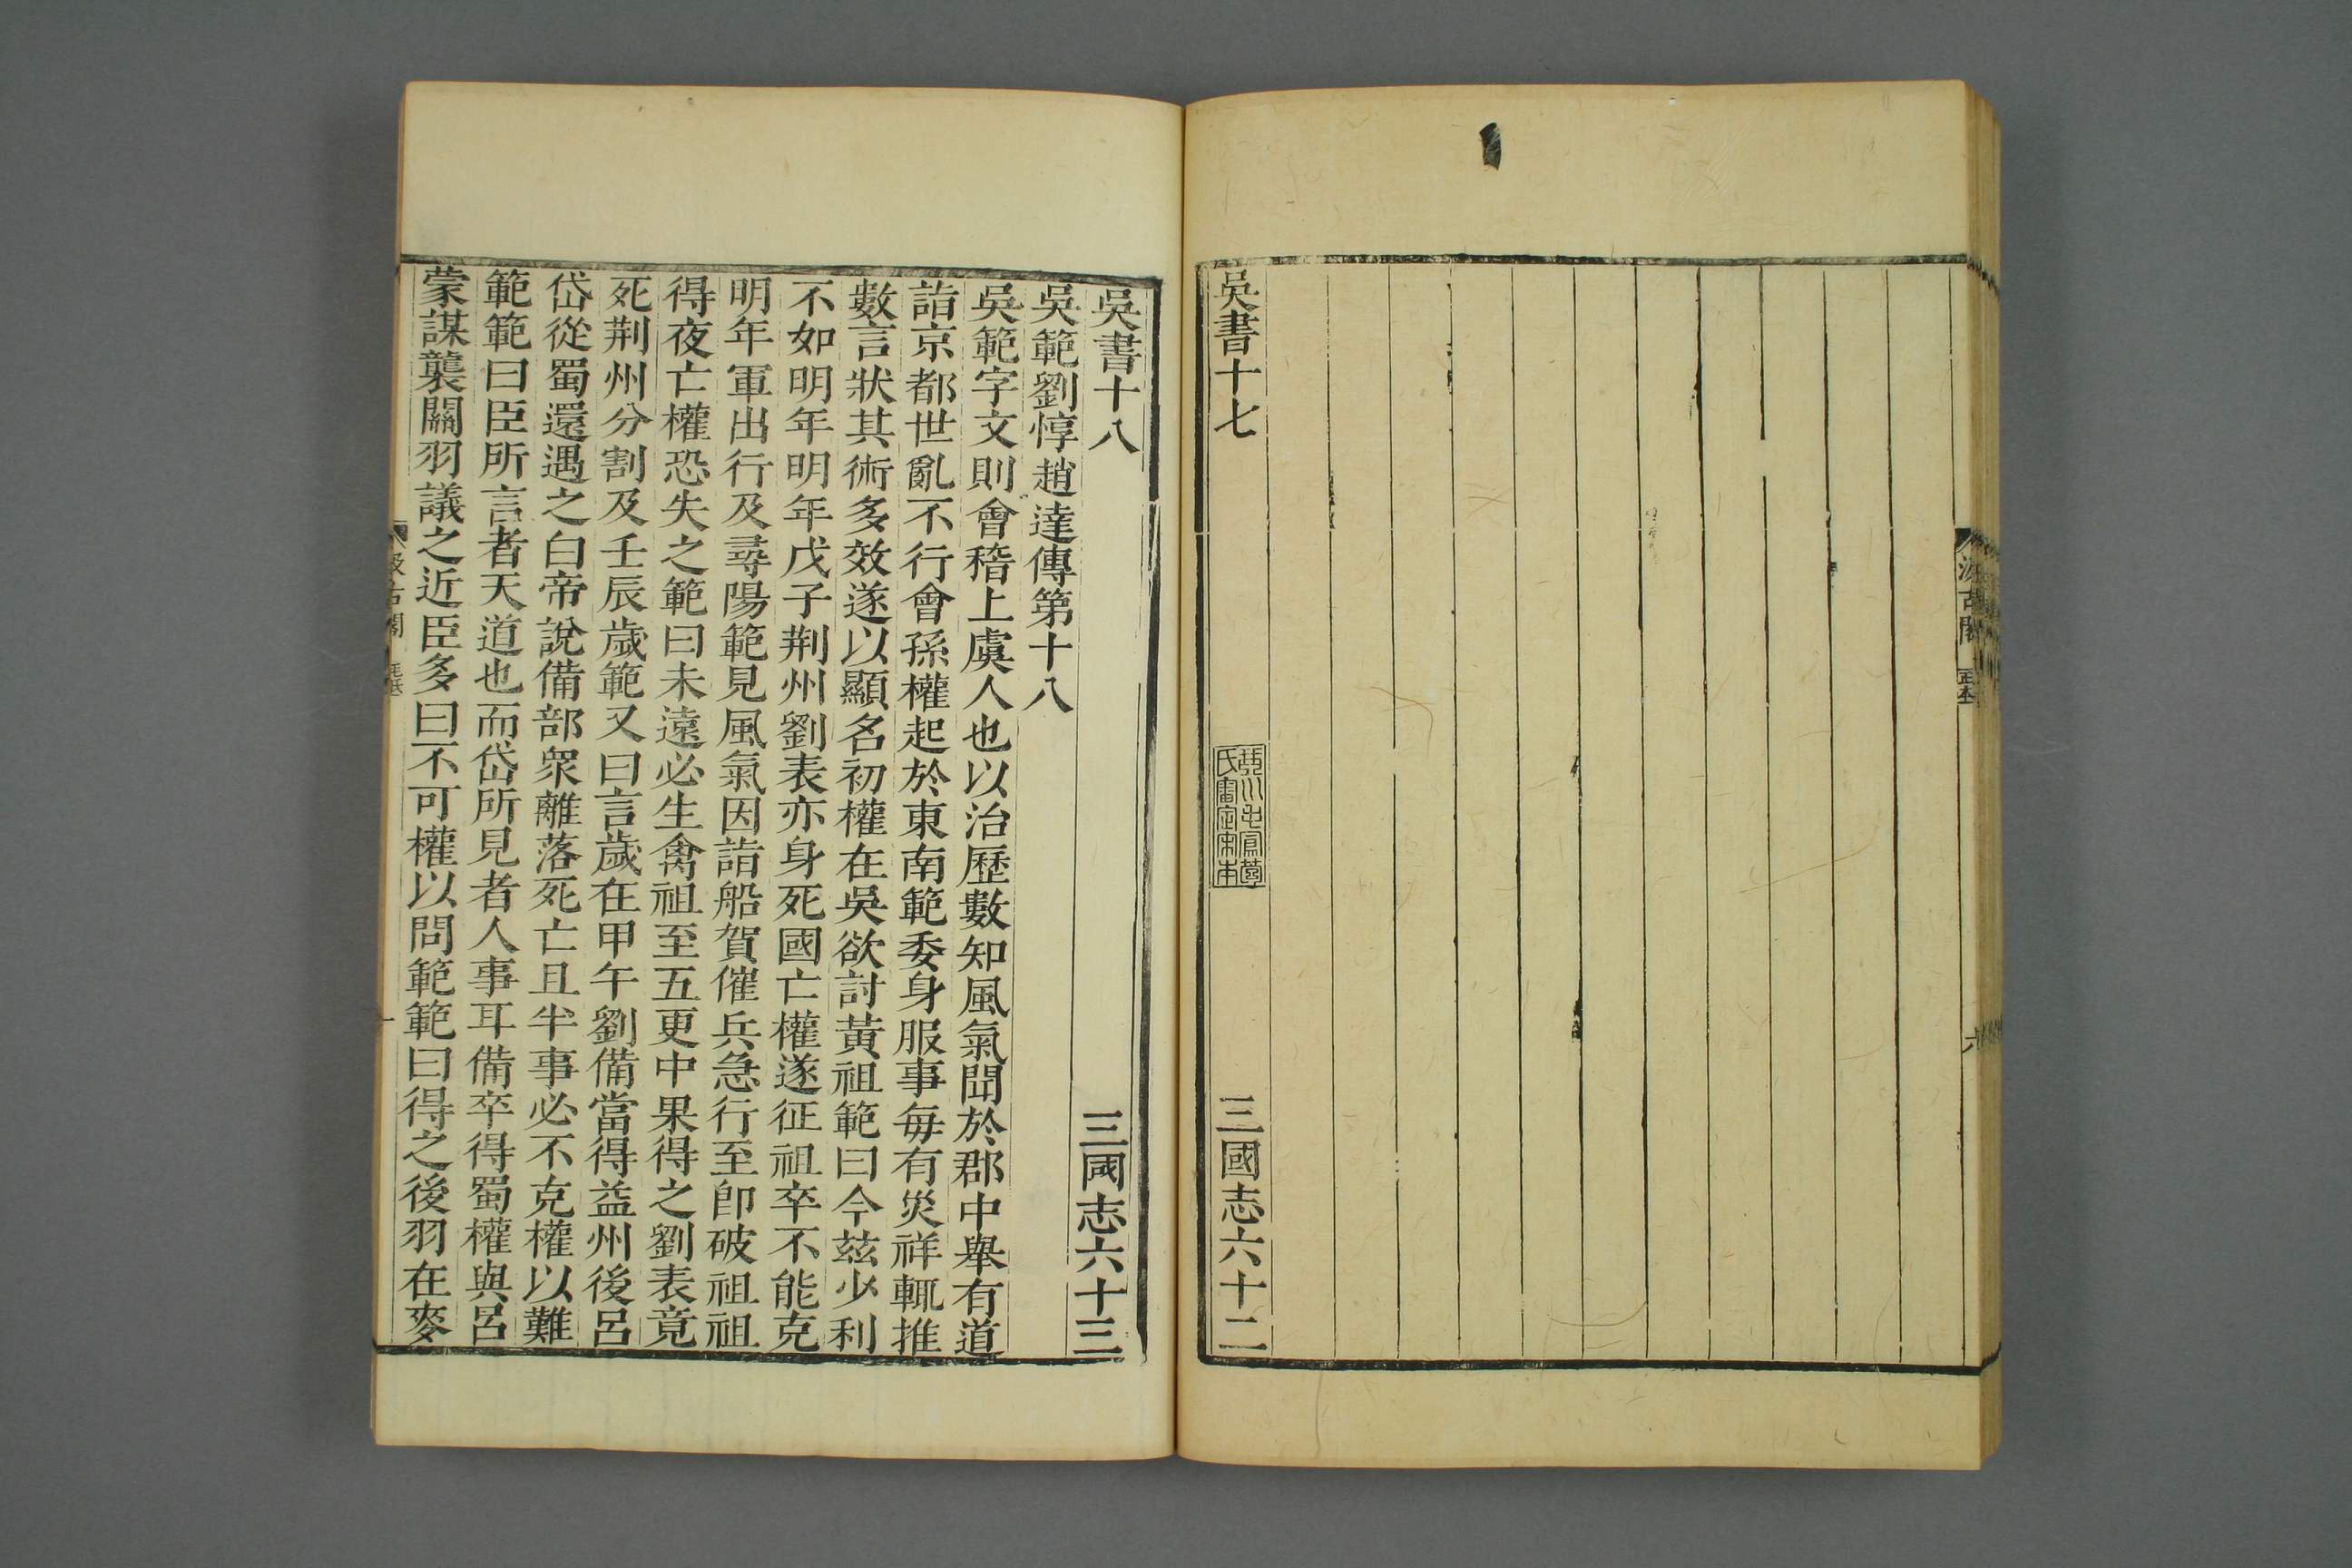 吳書十七
三國志六十二
吳書十八
三國志六十三
吳範劉惇趙達傳第十八
吳範字文則會稽上虞人也以治歷數知風氣聞於郡中舉有道
詣京都世亂不行會孫權起於東南範委身服事每有災祥輒推
數言狀其術多效遂以顯名初權在吳欲討黃祖範曰今茲少利
不如明年明年戊子荆州劉表亦身死國亡權遂征祖卒不能克
明年軍出行及尋陽範見風氣因詣船賀催兵急行至卽破祖祖
得夜亡權恐失之範曰未遠必生禽祖至五更中果得之劉表竟
死荆州分割及壬辰歲範又曰言歲在甲午劉備當得益州後呂
岱從蜀還遇之白帝說備部衆離落死亡且半事必不克權以難
範範曰臣所言者天道也而岱所見者人事耳備卒得蜀權與呂
蒙謀襲關羽議之近臣多曰不可權以問範範曰得之後羽在麥